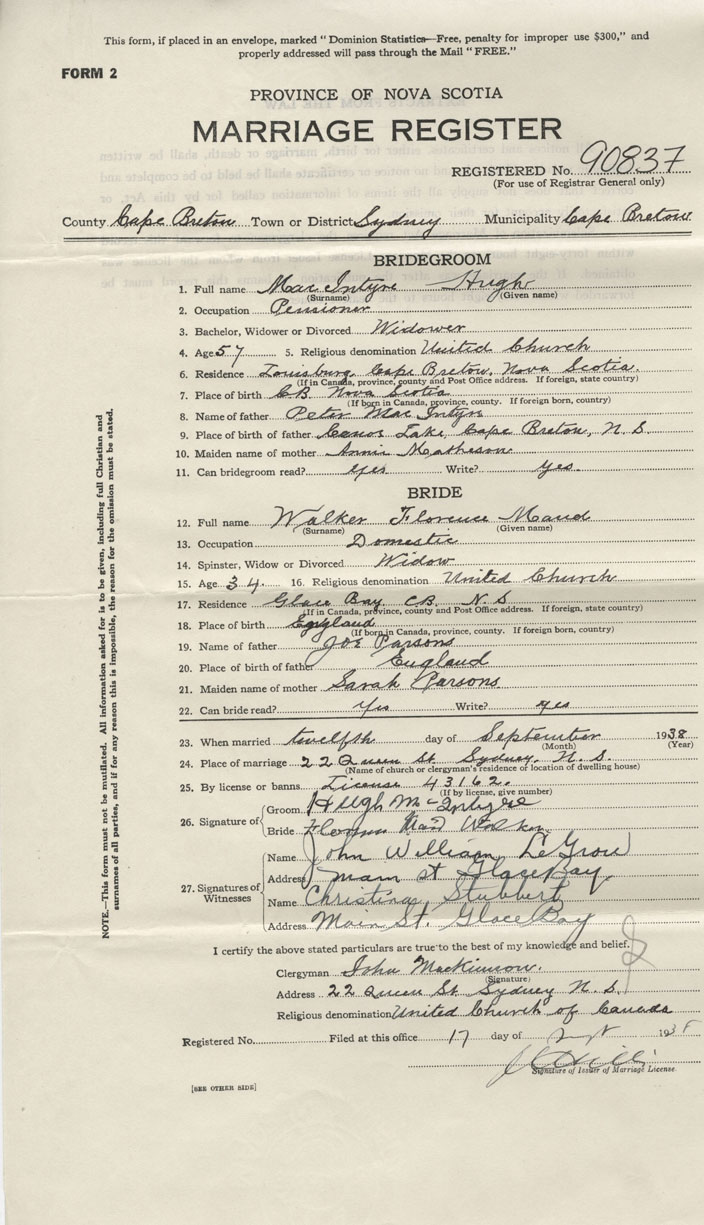 This form, if placed in an envelope, marked "Dominion Statistics—Free, penalty for improper use $300," and
properly addressed will pass through the Mail "FREE."
FORM 2
PROVINCE OF NOVA SCOTIA
MARRIAGE REGISTER
REGISTERED No. 90837
(For use of Registrar General only)
County Cape Breton Town or District Sydney Municipality Cape Breton
BRIDEGROOM
1. Full name Mac Intyre Hugh
(Surname) (Given name)
2. Occupation Pensioner
3. Bachelor, Widower or Divorced Widower
4. Age 57 5. Religious denomination United Church
6. Residence Louisburg, Cape Breton, Nova Scotia.
(If in Canada, province, county and Post Office address. If foreign, state country)
7. Place of birth C.B. Nova Scotia
(If born in Canada, province, county. If foreign born, country)
8. Name of father Peter Mac Intyre
9. Place of father Lake, Cape Breton, N.S.
10. Maiden name of mother Annie Matheson
11. Can bridegroom read? yes Write? yes.
BRIDE
12. Full name Walker Florence Maud
(Surname) (Given name)
13. Occupation Domestic
14. Spinster, Widow or Divorced Widow
15. Age 34. 16. Religious denomination United Church
17. Residence Glace Bay C.B. N.S
(If in Canada, province, county and Post Office address. If foreign, state country)
18. Place of birth England
(If born in Canada, province, county. If foreign born, country)
19. Name of father Joe Parsons
20. Place of birth of father England
21. Maiden name of mother Sarah Parsons
22. Can bride read? Yes Write? yes
23. When married twelfth day of September 1938
(Month) (Year)
24. Place of marriage 22 Queen St Sydney, N.S.
(Name of church or clergyman's residence or location of dwelling house)
25. By license or banns License 43162.
(If by license, give number)
26. Signature of
Groom Hugh McIntyre
Bride Florence Maud Walker
27. Signatures of Witnesses
Name John William LeGrow
Address main st Glace Bay
Name Christina Stubbert
Address Main St. Glace Bay
I certify the above stated particulars are true to the best of my knowledge and belief.
Clergyman John Mackinnon.
(Signature)
Address 22 Queen St Sydney N.S.
Religious denomination United Church of Canada
Registered No. Filed at this office 17 day of 1938
Signature of Issuer of Marriage License
[SEE OTHER SIDE]
NOTE.—This form must not be mutilated. All information asked for is to be given, including full Christian and
surnames of all parties, and if for any reason this is impossible, the reason for the omission must be stated.